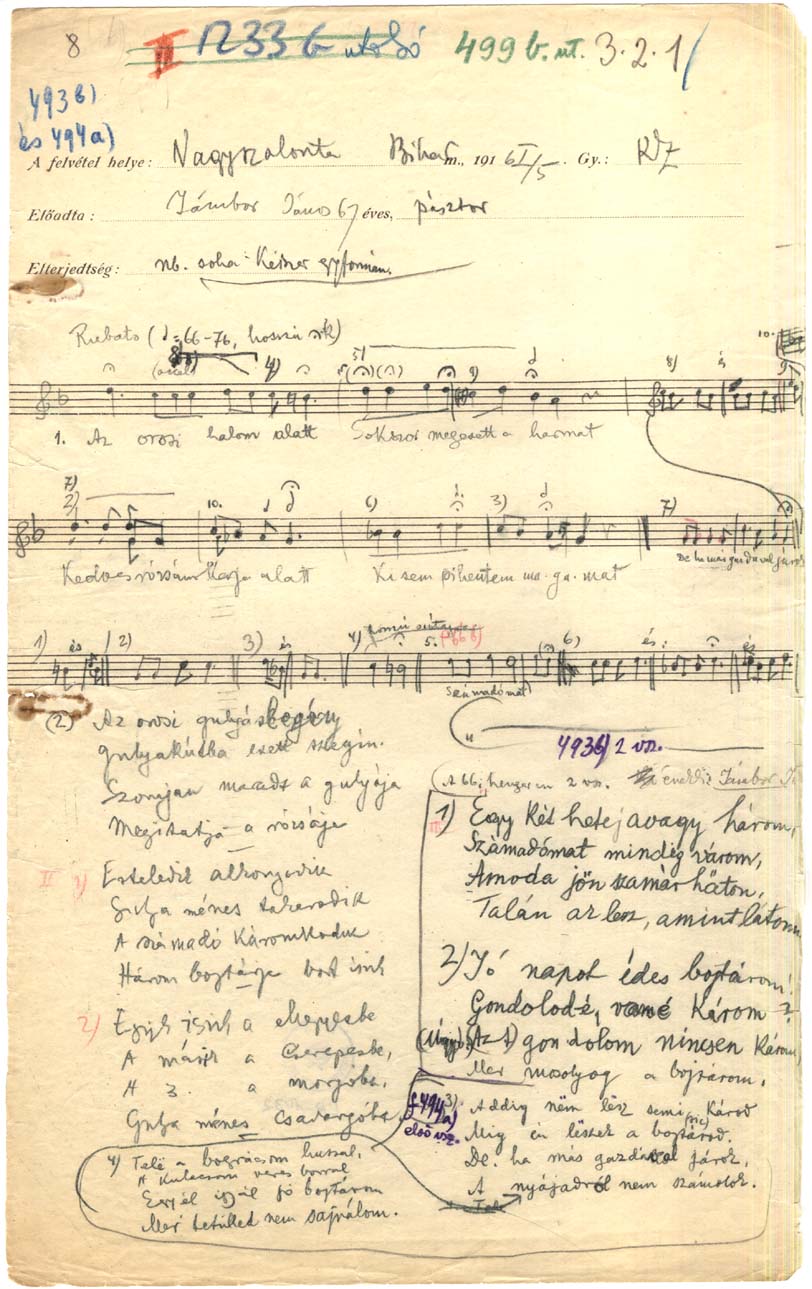 8 1233 b utolsó 499 b. ut. 3. 2. 1/
493 b)
és 494 a)
A felvétel helye: Nagyszalonta Bihar m., 191 6 I/5. Gy.: KZ
Előadta: Jámbor János 67 éves, pásztor
Elterjedtség: nb. soha kétszer egyformán.
Rubato (♩=66-76, hosszú
1. Az orosi halom alatt Sokszor megesett a harmat
Kedves rózsám karja alatt Ki sem pihentem ma-ga-mat
De ha más gazdával járok
1) és 2) 3) és 4) 5. 6) és
Számadómat
(2) Az orosi gulyáslegény
Gulyakútba esett szegín.
Szomjan maradt a gulyája
Megitatja a rózsája
II 1) Esteledik alkonyodik
Gulya ménes takarodik
A számadó káromkodik
Három bojtárja bort iszik
2) Egyik iszik a
A másik a Cserepesbe,
A 3. a
Gulya ménes csavargóba
4) Telé a bográcsom hussal,
A kulacsom veres borral
Egyél igyál jó bojtárom
Mer tetülled nem sajnálom.
493 b) 2 vsz.
(A 66. hengeren 2 vsz. Jámbor
1) Eggy két hetej avagy három,
Számadómat mindég várom,
Amoda jön szamár háton,
Talán az lesz, amint látom
2) Jó napot édes bojtárom!
Gondolod-é, van-é károm?
Az) gondolom nincsen károm
Mer mosolyog a bojtárom,
494 a) első vsz.
3) Addig nem lész semi károd
Mig én lészek a bojtárod.
De ha más gazdával járok,
A nyájadról nem számolok.